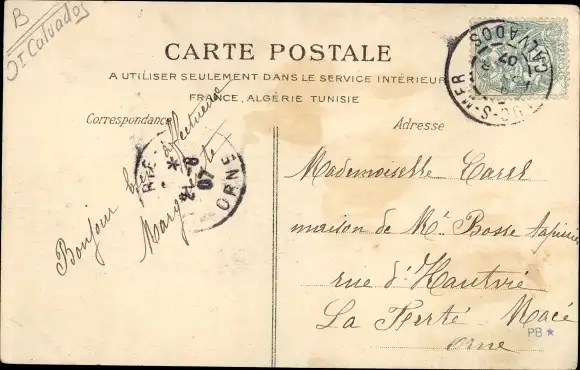 B
Dt Calvados
CARTE POSTALE
A UTILISER SEULEMENT DANS LE SERVICE INTÉRIEUR
FRANCE, ALGÉRIE TUNISIE
Correspondance
Adresse
CALVADOS
07
S-MER
ORNE
07
Bonjour affectueux
Marguerite
Mademoiselle Carel
maison de Mr. Bosse tapissier
rue d'Hautvie
La Ferté Macé
Orne
PB